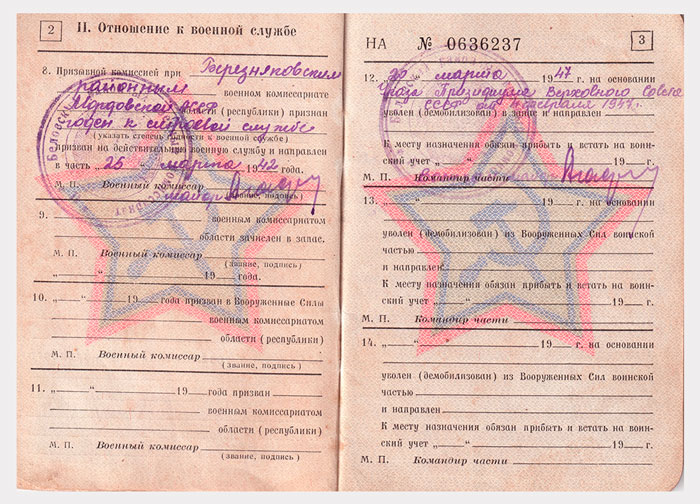 2
II. Отношение к военной службе
8. Призывной комиссией при Березняковским
районным военном комиссариате
Мордовской АССР области (республики) признан
годен к строевой службе
(указать степень годности к военной службе)
Призван на действительную военную службу и направлен
в часть „25 “ марта 1942 года.
М. П. Военный комиссар майор
(звание, подпись)
9. военным комиссариатом
области зачислен в запас.
М. П. Военный комиссар
(звание, подпись)
„ “ 19 года.
10. „ “ 19 года призван в Вооруженные Силы
военным комиссариатом
области (республики)
М. П. Военный комиссар
(звание, подпись)
11. „ “ 19 года призван
военным комиссариатом
области (республики)
М. П. Военный комиссар
(звание, подпись)
НА № 0636237
3
12. марта 1947 г. на основании
Президиума Верховного Совета
СССР от февраля 1947 г.
уволен (демобилизован) в запас
К месту жительства обязан прибыть и встать на воинский
учет „ “ 19 г.
М. П. Командир части майор
13. „ “ 19 г. на основании
уволен (демобилизован) из Вооруженных Сил воинской
частью
и направлен
К месту назначения обязан прибыть и встать на воин-
ский учет „ “ 19 г.
М. П. Командир части
14. „ “ 19 г. на основании
уволен (демобилизован) из Вооруженных Сил воинской
частью
и направлен
К месту назначения обязан прибыть и встать на воин-
ский учет „ “ 19 г.
М. П. Командир части